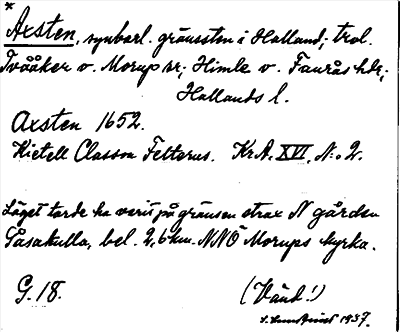 *
Axsten, synbarl. gränssten i Halland; trol.
Tvååker o. Morup sr; Himle o. Faurås hdr;
Hallands l.
Axsten 1652.
Kietell Classon Felterus. KrA. XVI, N:o 2.
Läget torde ha varit på gränsen strax N gården
Gåsakulla, bel. 2,6 km. NNÖ Morups kyrka.
G. 18.
(Vänd!)
1937.